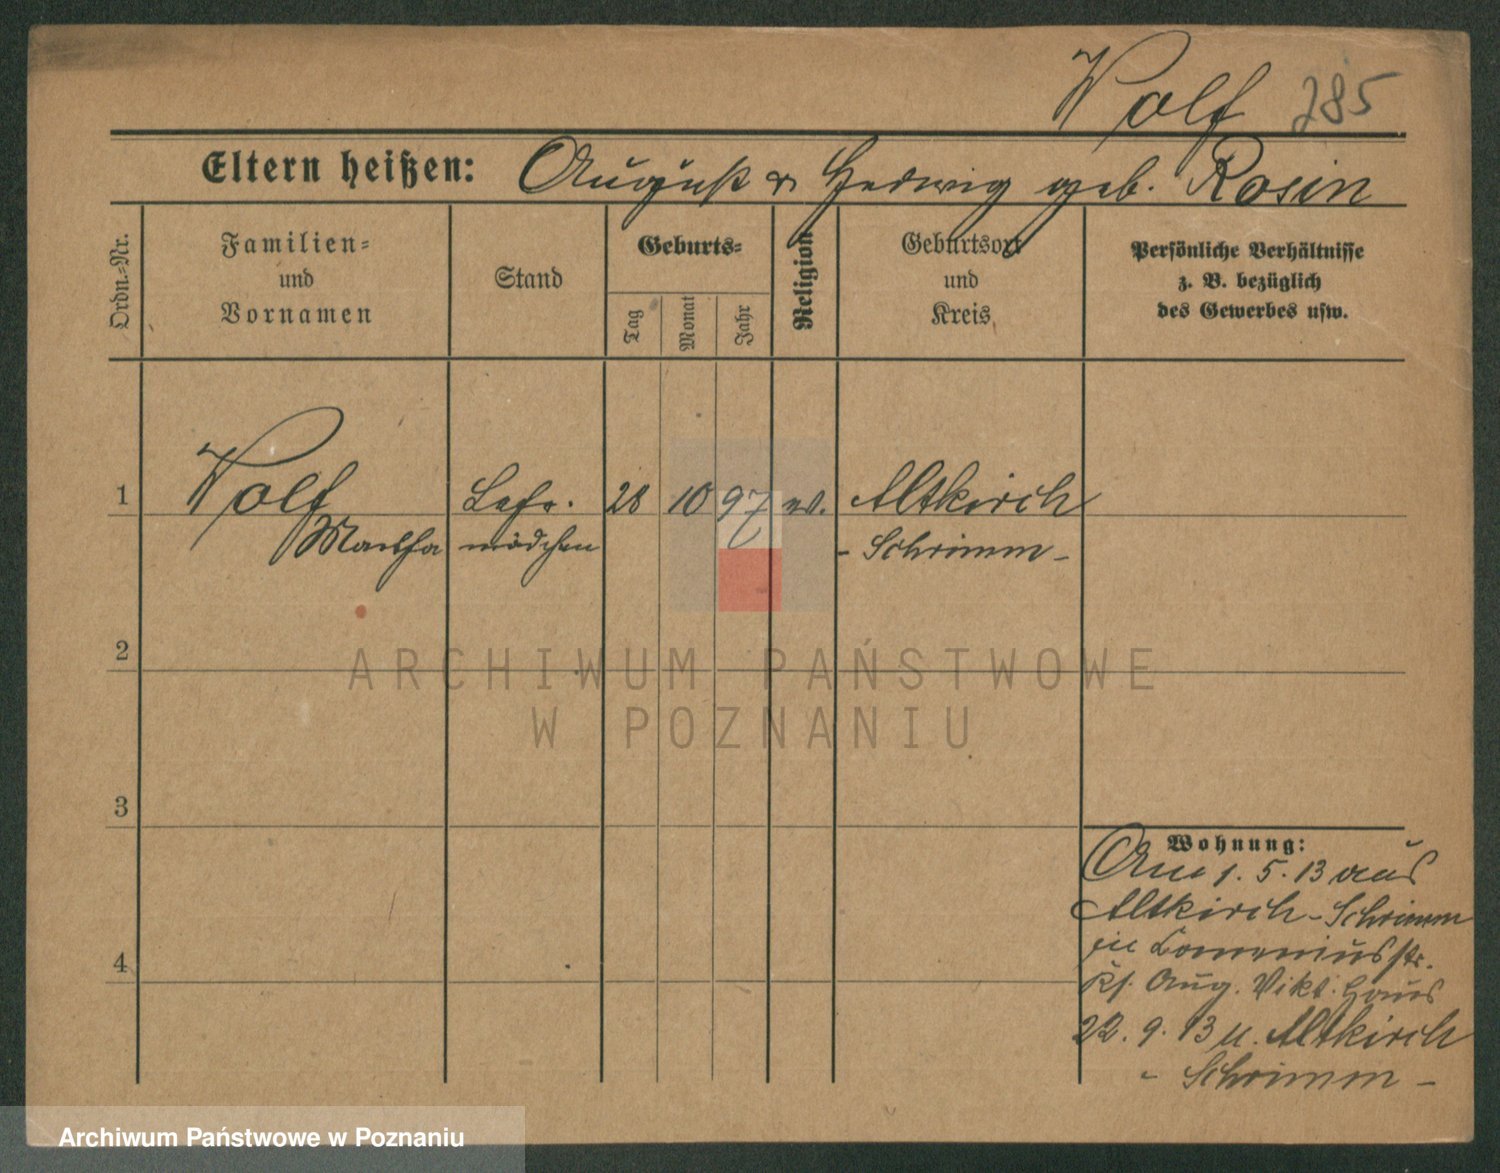 Wolf 285
Eltern heißen: August & Hedwig geb. Rosin
Ordn.=Nr.
Familien=
und
Vornamen
Stand
Geburts=
Tag
Monat
Jahr
Religion
Geburtsort
und
Kreis
Persönliche Verhältnisse
z. B. bezüglich
des Gewerbes usw.
1 Wolf 28 10 97 ev. Altkirch
Martha mädchen - Schrimm -
2
3
4
Wohnung:
1.5.13 aus
Altkirch - Schrimm
Aug. Vikt. Haus
22.9.13 n. Altkirch
- Schrimm -
ARCHIWUM PAŃSTWOWE
W POZNANIU
Archiwum Państwowe w Poznaniu